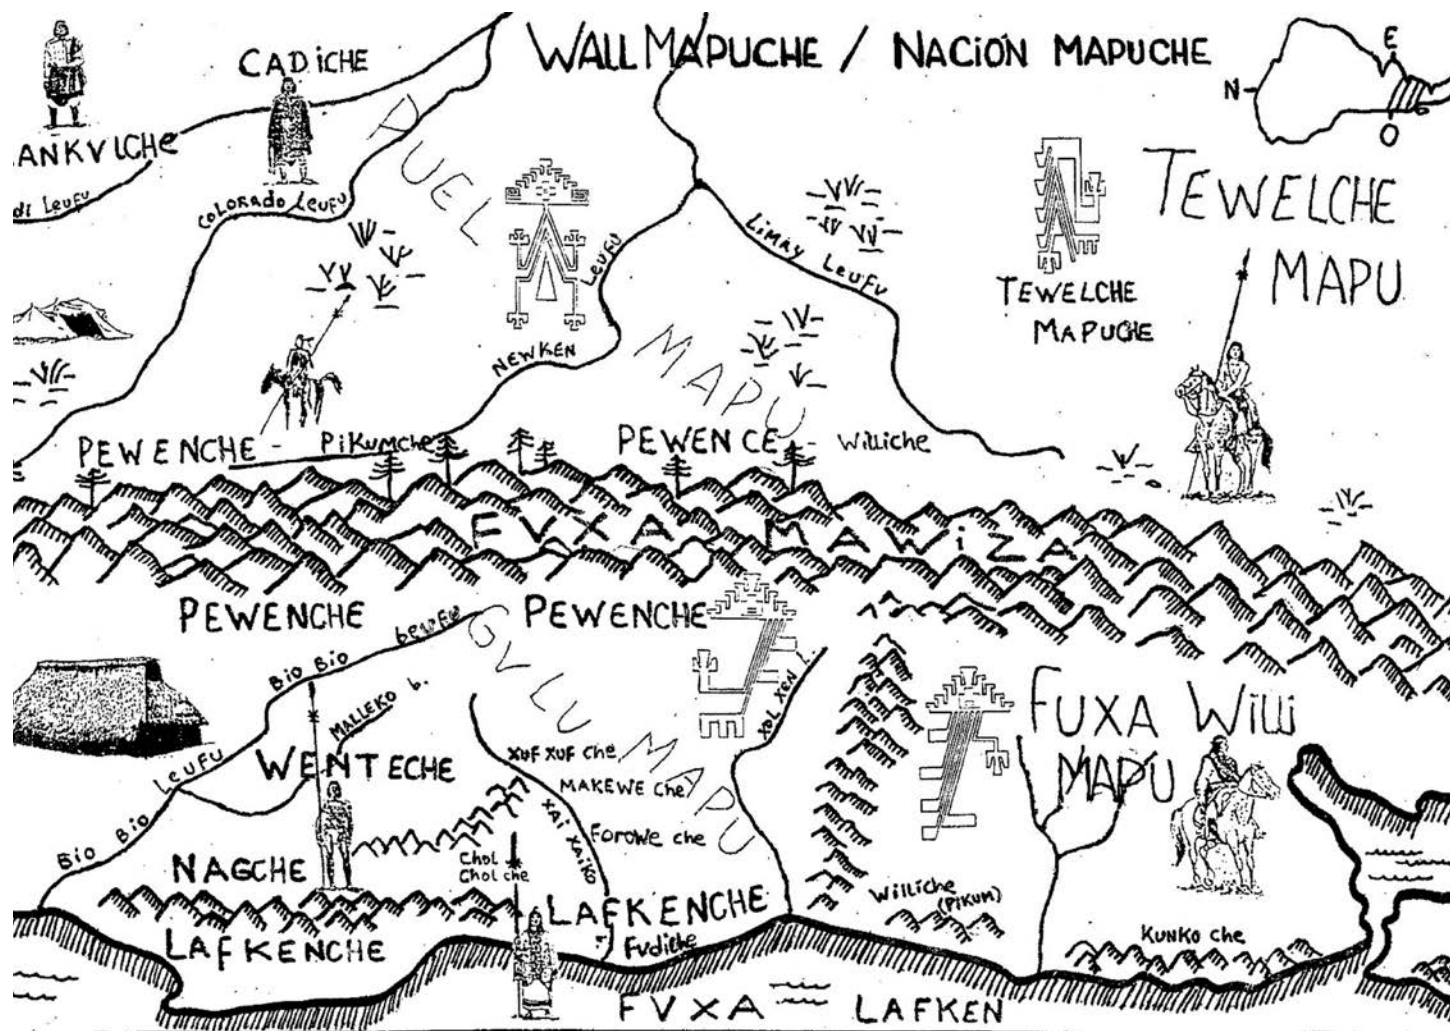 WALLMAPUCHE / NACIÓN MAPUCHE
E
N
O
CADICHE
ANKVLCHE
di Leufu
COLORADO Leufu
PUEL
MAPU
NEWKEN
Leufu
LiMAY Leufu
TEWELCHE
MAPUCHE
TEWELCHE
MAPU
PEWENCHE - PiKumche
PEWENCE - Williche
FVXA MAWiZA
PEWENCHE
PEWENCHE
Bio Bio Leufu
Bio Bio Lewfu
MALLEKO b.
WENTECHE
GVLU MAPU
XUF XUF che
MAKEWE che
FOROWE che
XAi XAiKO
Chol
Chol che
NAGCHE
LAFKENCHE
LAFKENCHE
Fvdiche
XOL XEN L.
FUXA Willi
MAPU
Williche
(PiKUM)
KUNKO che
FVXA LAFKEN